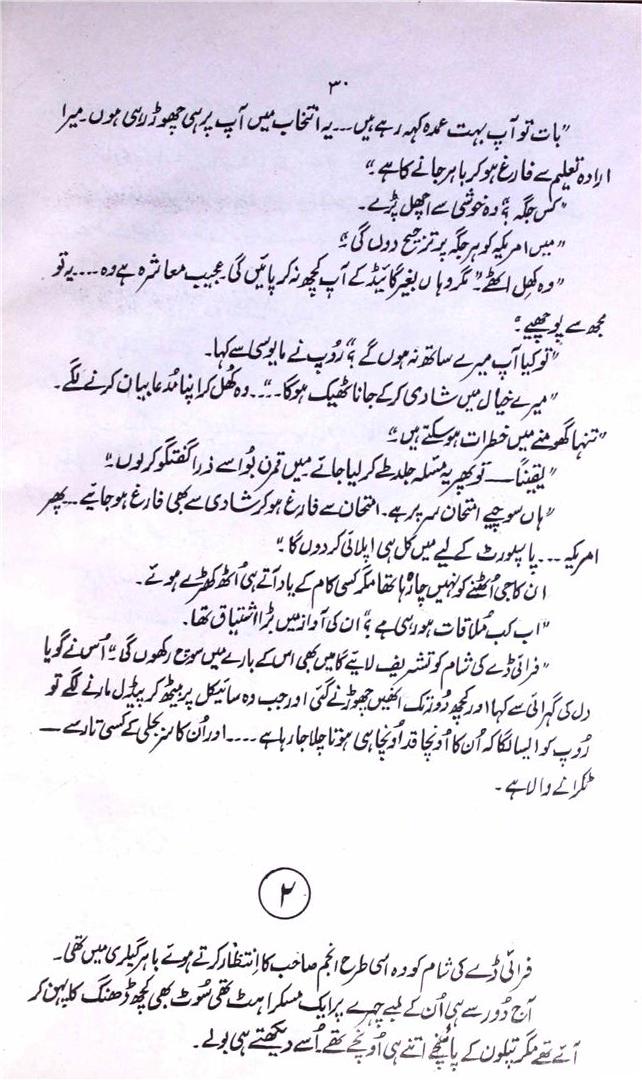 ۳۰
”بات تو آپ بہت عمدہ کہہ رہے ہیں ۔۔۔ یہ انتخاب میں آپ پر ہی چھوڑ رہی ہوں۔ میرا
ارادہ تعلیم سے فارغ ہو کر باہر جانے کا ہے۔“
”کس جگہ؟“ وہ خوشی سے اچھل پڑے۔
”میں امریکہ کو ہر جگہ پر ترجیح دوں گی۔“
”وہ کھل اٹھے۔“ مگر وہاں بغیر گائیڈ کے آپ کچھ نہ کر پائیں گی۔ عجیب معاشرہ ہے وہ ۔۔۔۔ یہ تو
مجھ سے پوچھیے۔“
”تو کیا آپ میرے ساتھ نہ ہوں گے؟“ رُوپ نے مایوسی سے کہا۔
”میرے خیال میں شادی کر کے جانا ٹھیک ہوگا ۔۔۔۔“ وہ کھُل کر اپنا مدعا بیان کرنے لگے۔
”تنہا گھومنے میں خطرات ہو سکتے ہیں۔“
”یقیناً ــــ تو پھر یہ مسئلہ جلد طے کر لیا جائے میں قمرن بُوا سے ذرا گفتگو کر لوں۔“
”ہاں سوچیے امتحان سر پر ہے۔ امتحان سے فارغ ہو کر شادی سے بھی فارغ ہو جائیے ۔۔۔ پھر
امریکہ ۔۔۔ پاسپورٹ کے لیے میں کل ہی اپلائی کر دوں گا۔“
ان کا جی اُٹھنے کو نہیں چاہ رہا تھا مگر کسی کام کے یاد آتے ہی اُٹھ کھڑے ہوئے۔
”اب کب مُلاقات ہو رہی ہے؟“ ان کی آواز میں بڑا اشتیاق تھا۔
”فرائی ڈے کی شام کو تشریف لائیے گا میں بھی اس کے بارے میں سوچ رکھوں گی۔“ اُس نے گویا
دل کی گہرائی سے کہا اور کچھ دُور تک انھیں چھوڑنے گئی اور جب وہ سائیکل پر بیٹھ کر پیڈل مارنے لگے تو
رُوپ کو ایسا لگا کہ اُن کا اُونچا قد اُونچا ہی ہوتا چلا جا رہا ہے ۔۔۔۔ اور اُن کا سر بجلی کے کسی تار سے ــــ
ٹکرانے والا ہے۔
۲
فرائی ڈے کی شام کو وہ اسی طرح انجم صاحب کا اِنتظار کرتے ہوئے باہر گیلری میں تھی۔
آج دُور سے ہی اُن کے لمبے چہرے پر ایک مسکراہٹ تھی سُوٹ بھی کچھ ڈھنگ کا پہن کر
آئے تھے مگر پتلون کے پائنچے اتنے ہی اُونچے تھے۔ اُسے دیکھتے ہی بولے۔